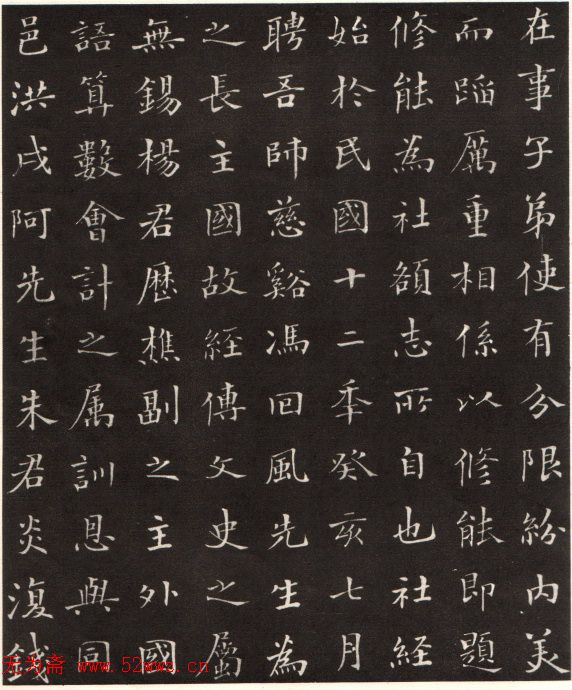 在事子弟使有分限紛内美
而蹈厲重相係以修能即題
修能為社額志所自也社経
始於民國十二季癸亥七月
聘吾師慈谿馮回風先生為
之長主國故経傳文史之屬
無錫楊君歴樵副之主外國
語算數會計之属訓息與同
邑洪戌阿先生朱君炎復錢
无为斋 www.52wwc.cn